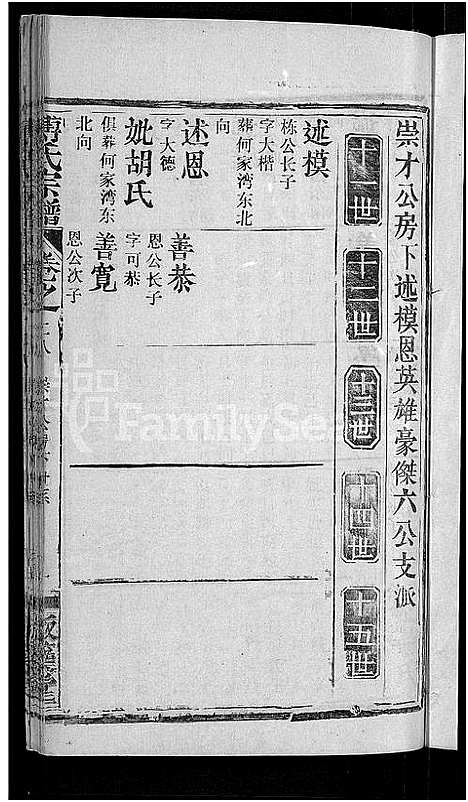 崇才公房下述模恩英雄豪傑六公支派
十一世
十二世
十三世
十四世
十五世
述模
栋公长子
字大楷
葬何家湾东北
向
述恩
字大德
妣胡氏
俱葬何家湾东
北向
善恭
恩公长子
字可恭
善寛
恩公次子
氏宗譜
卷之
FamilySe